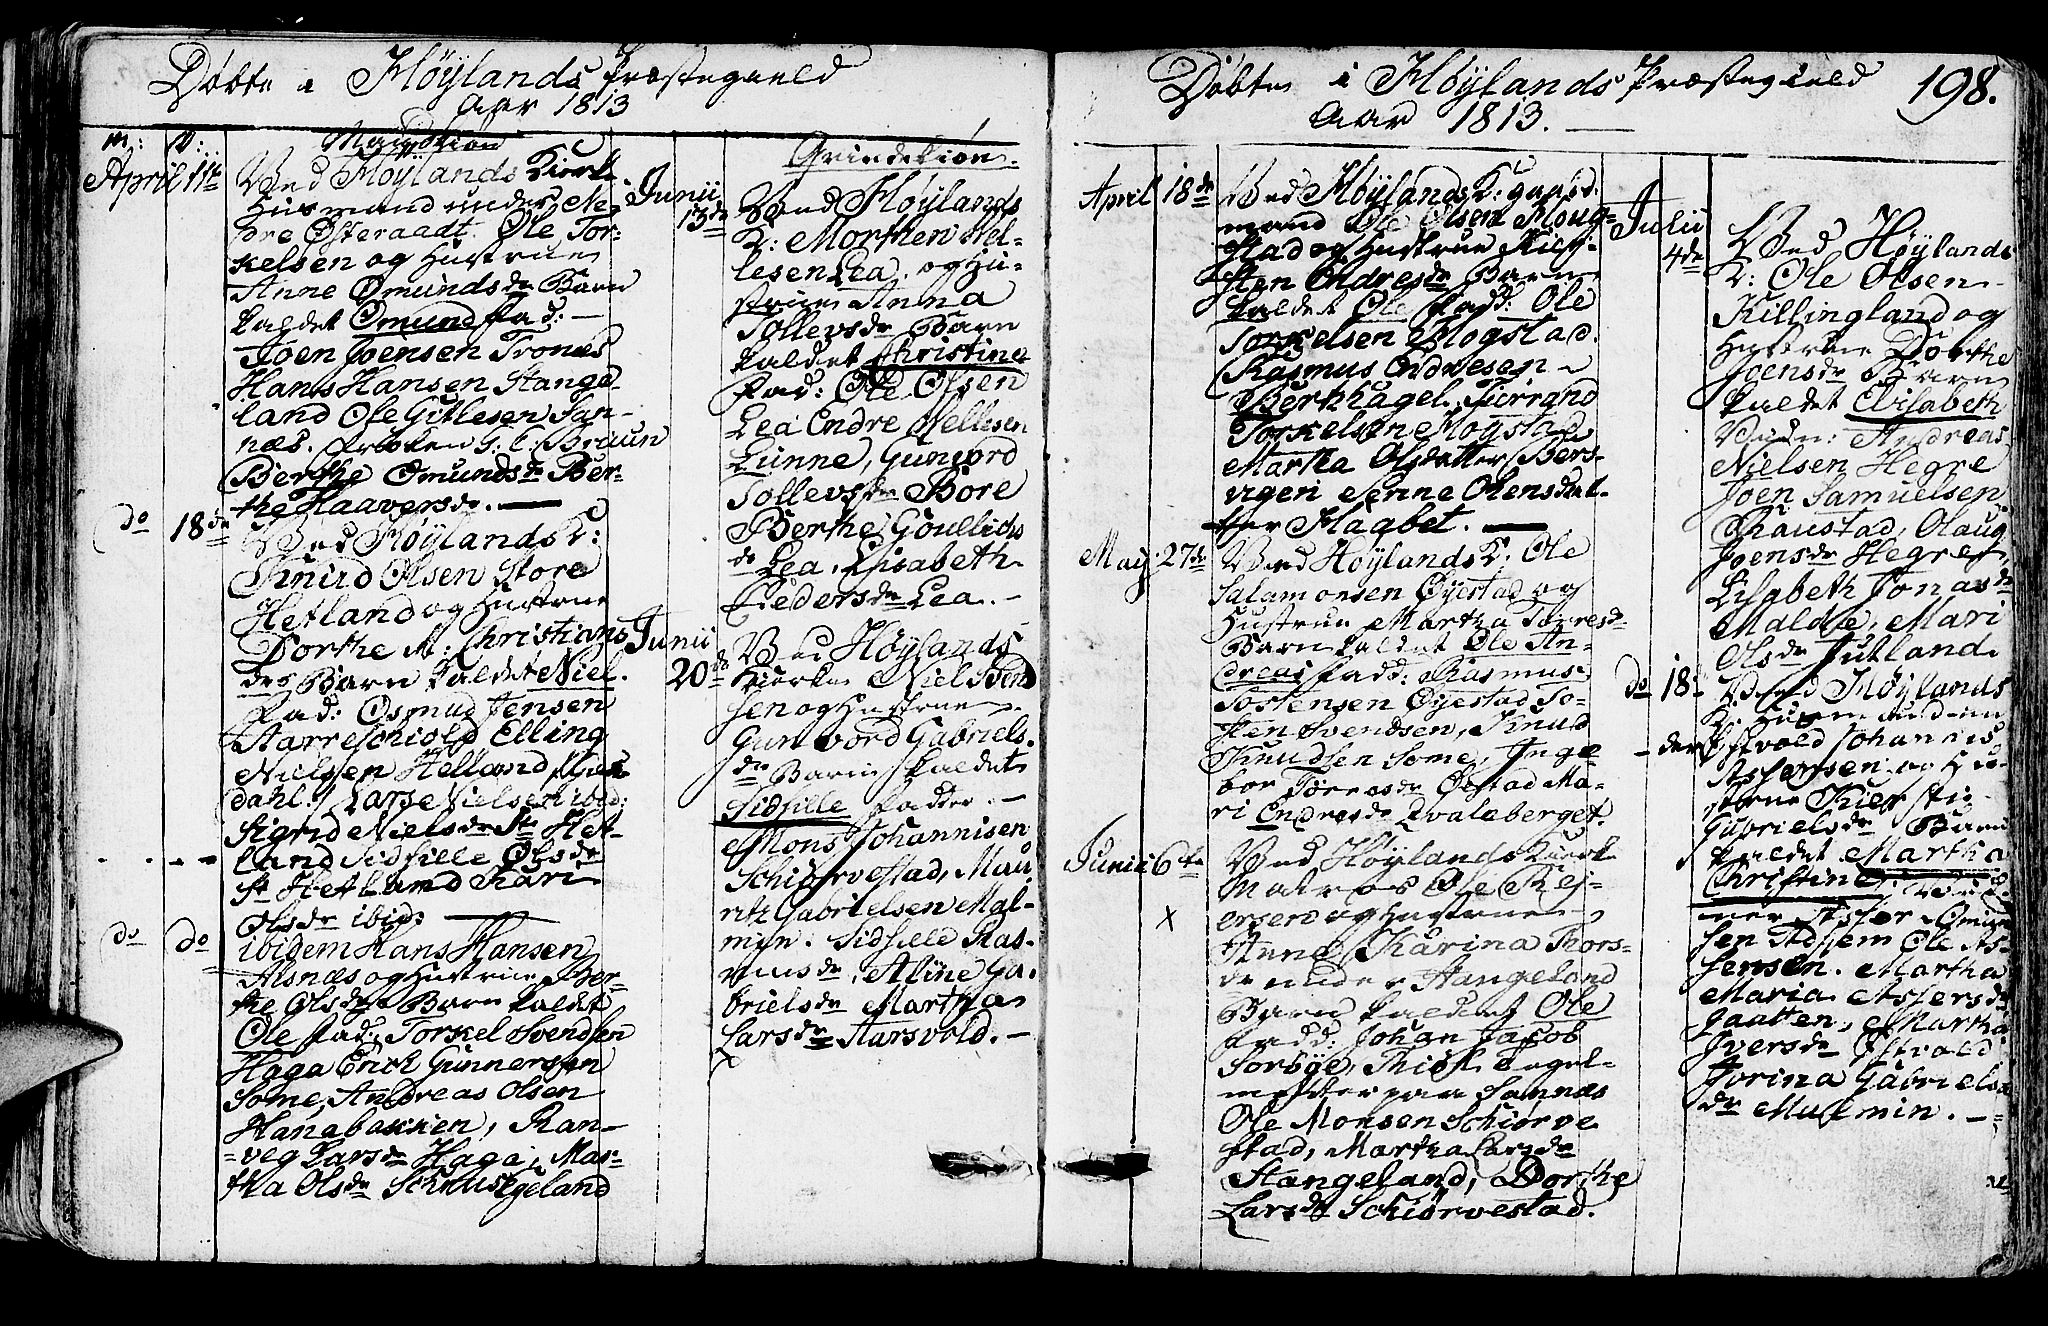 Døbte i Høylands Præstegield
Aar 1813
M: D:
Mandkiøn
April 11te
Ved Høylands Kierk
Husmand under Ne-
dre Østeraadt. Ole Tor-
kelsen og Hustrue
Anne Omundsdr Barn
kaldet Omund Fad: —
Joen Joensen Tronæs
Hans Hansen Stange-
land Ole Gitlesen San-
næs. Frøken G. C. Braun
Berthe Omundsdr Ber-
the Haaversdr. —
do 18de
Ved Høylands K:
Knud Olsen Store
Hetland og Hustrue
Dorthe M: Christians
des Barn kaldet Niel.
Fad: Osmud Jensen
Aarreschiold Elling
Nielsen Helland
dahl. Lars Nielsen ibid:
Sigrid Nielsdr St: Het-
land Sidsille Olsdr
St Hetland Kari
Olsdr ibid:
do do
ibidem Hans Hansen
Alsnæs og Hustrue Ber-
the Olsdr Barn kaldet
Ole Fad: Torkel Svendsen
Haga Erick Gunnersen
Some, Andreas Olsen
Hanabakken, Ran-
veg Larsdr Haga, Mar-
tha Olsdr Schrusgeland
Qvindekiøn.
Junii 13de
Ved Høylands
K: Morthen Nel-
lesen Lea. og Hu-
strue Anna
Tollevsdr Barn
kaldet Christine
Fad: Ole Olsen
Lea Endre Nellesen
Lunne, Gunvord
Tollevsdr Bore
Berthe Goullids
dr Lea. Lisabeth
Pedersdr Lea. —
Junii 20de
Ved Høylands
Kierke Niels Bend
sen og Hustrue
Gunvord Gabriels.
dr Barn kaldet
Sidsille Fadder. —
Mons Johannisen
Schiørvestad, Mau
ritz Gabrielsen Mal-
min. Sidsille Ras-
musdr, Aline Ga-
brielsdr Martha
Larsdr Aarsvold. —
x
Døbte i Høylands Præstegield 198.
Aar 1813. —
April 18de
Ved Høylands K: gaard
mand Ole Olsen Moug-
stad og Hustrue Kier-
sten Endresdr Barn
kaldet Ole Fadd: Ole
Torkelsen Mogstad.
Rasmus Endresen
Berkhagel. Turrand
Torkelsen Mogstad
Martha Olsdatter Bers-
vigen Senne Olensdat-
ter Hagbet. —
May 27de
Ved Høylands K: Ole
Salamonsen Øyestad og
Hustrue Martha Torresdr
Barn kaldet Ole An-
dreas Fadd: Rasmus
Tostensen Øyestad To-
sten Svendsen, Knud
Knudsen Some, Inge-
bor Torresdr Øyestad Ma-
ri Endresdr Qvaleberget.
Junii 6te
x
Ved Høylands Kierk
Matros Ole Rej-
ersen og Hustrue
Anna Karina Thors-
dr under Stangeland
Barn kaldet Ole
Fadd: Johan Jacob
Sorbye, Thiok. Tegel-
mester paa Sannæs
Ole Monsen Schiørve
stad, Martha Larsdr
Stangeland, Dorthe
Larsdr Schiørvestad.
Julii 4de
Ved Høylands
K: Ole Olsen
Killingland og
Hustrue Dorthe
Joensdr Barn
kaldet Elisabeth
Vidn: Andreas
Nielsen Hegre
Joen Samuelsen
Skaustad, Olaug
Joensdr Hegre
Lisabeth Jonasdr
Malde, Mari
Olsdr Jutland.
do 18de
Ved Høylands
K: Huusmand un-
der Østvold Johannis
Assersen og Hu-
strue Kierstie
Gabrielsdr Barn
kaldet Martha
Christine. Vid-
ner Asser Omun
sen Adsem Ole As-
sersen. Martha
Maria Assersdr
Gaatten, Martha
Iversdr Østvold
Jorina Gabriels
dr Mulmin. —